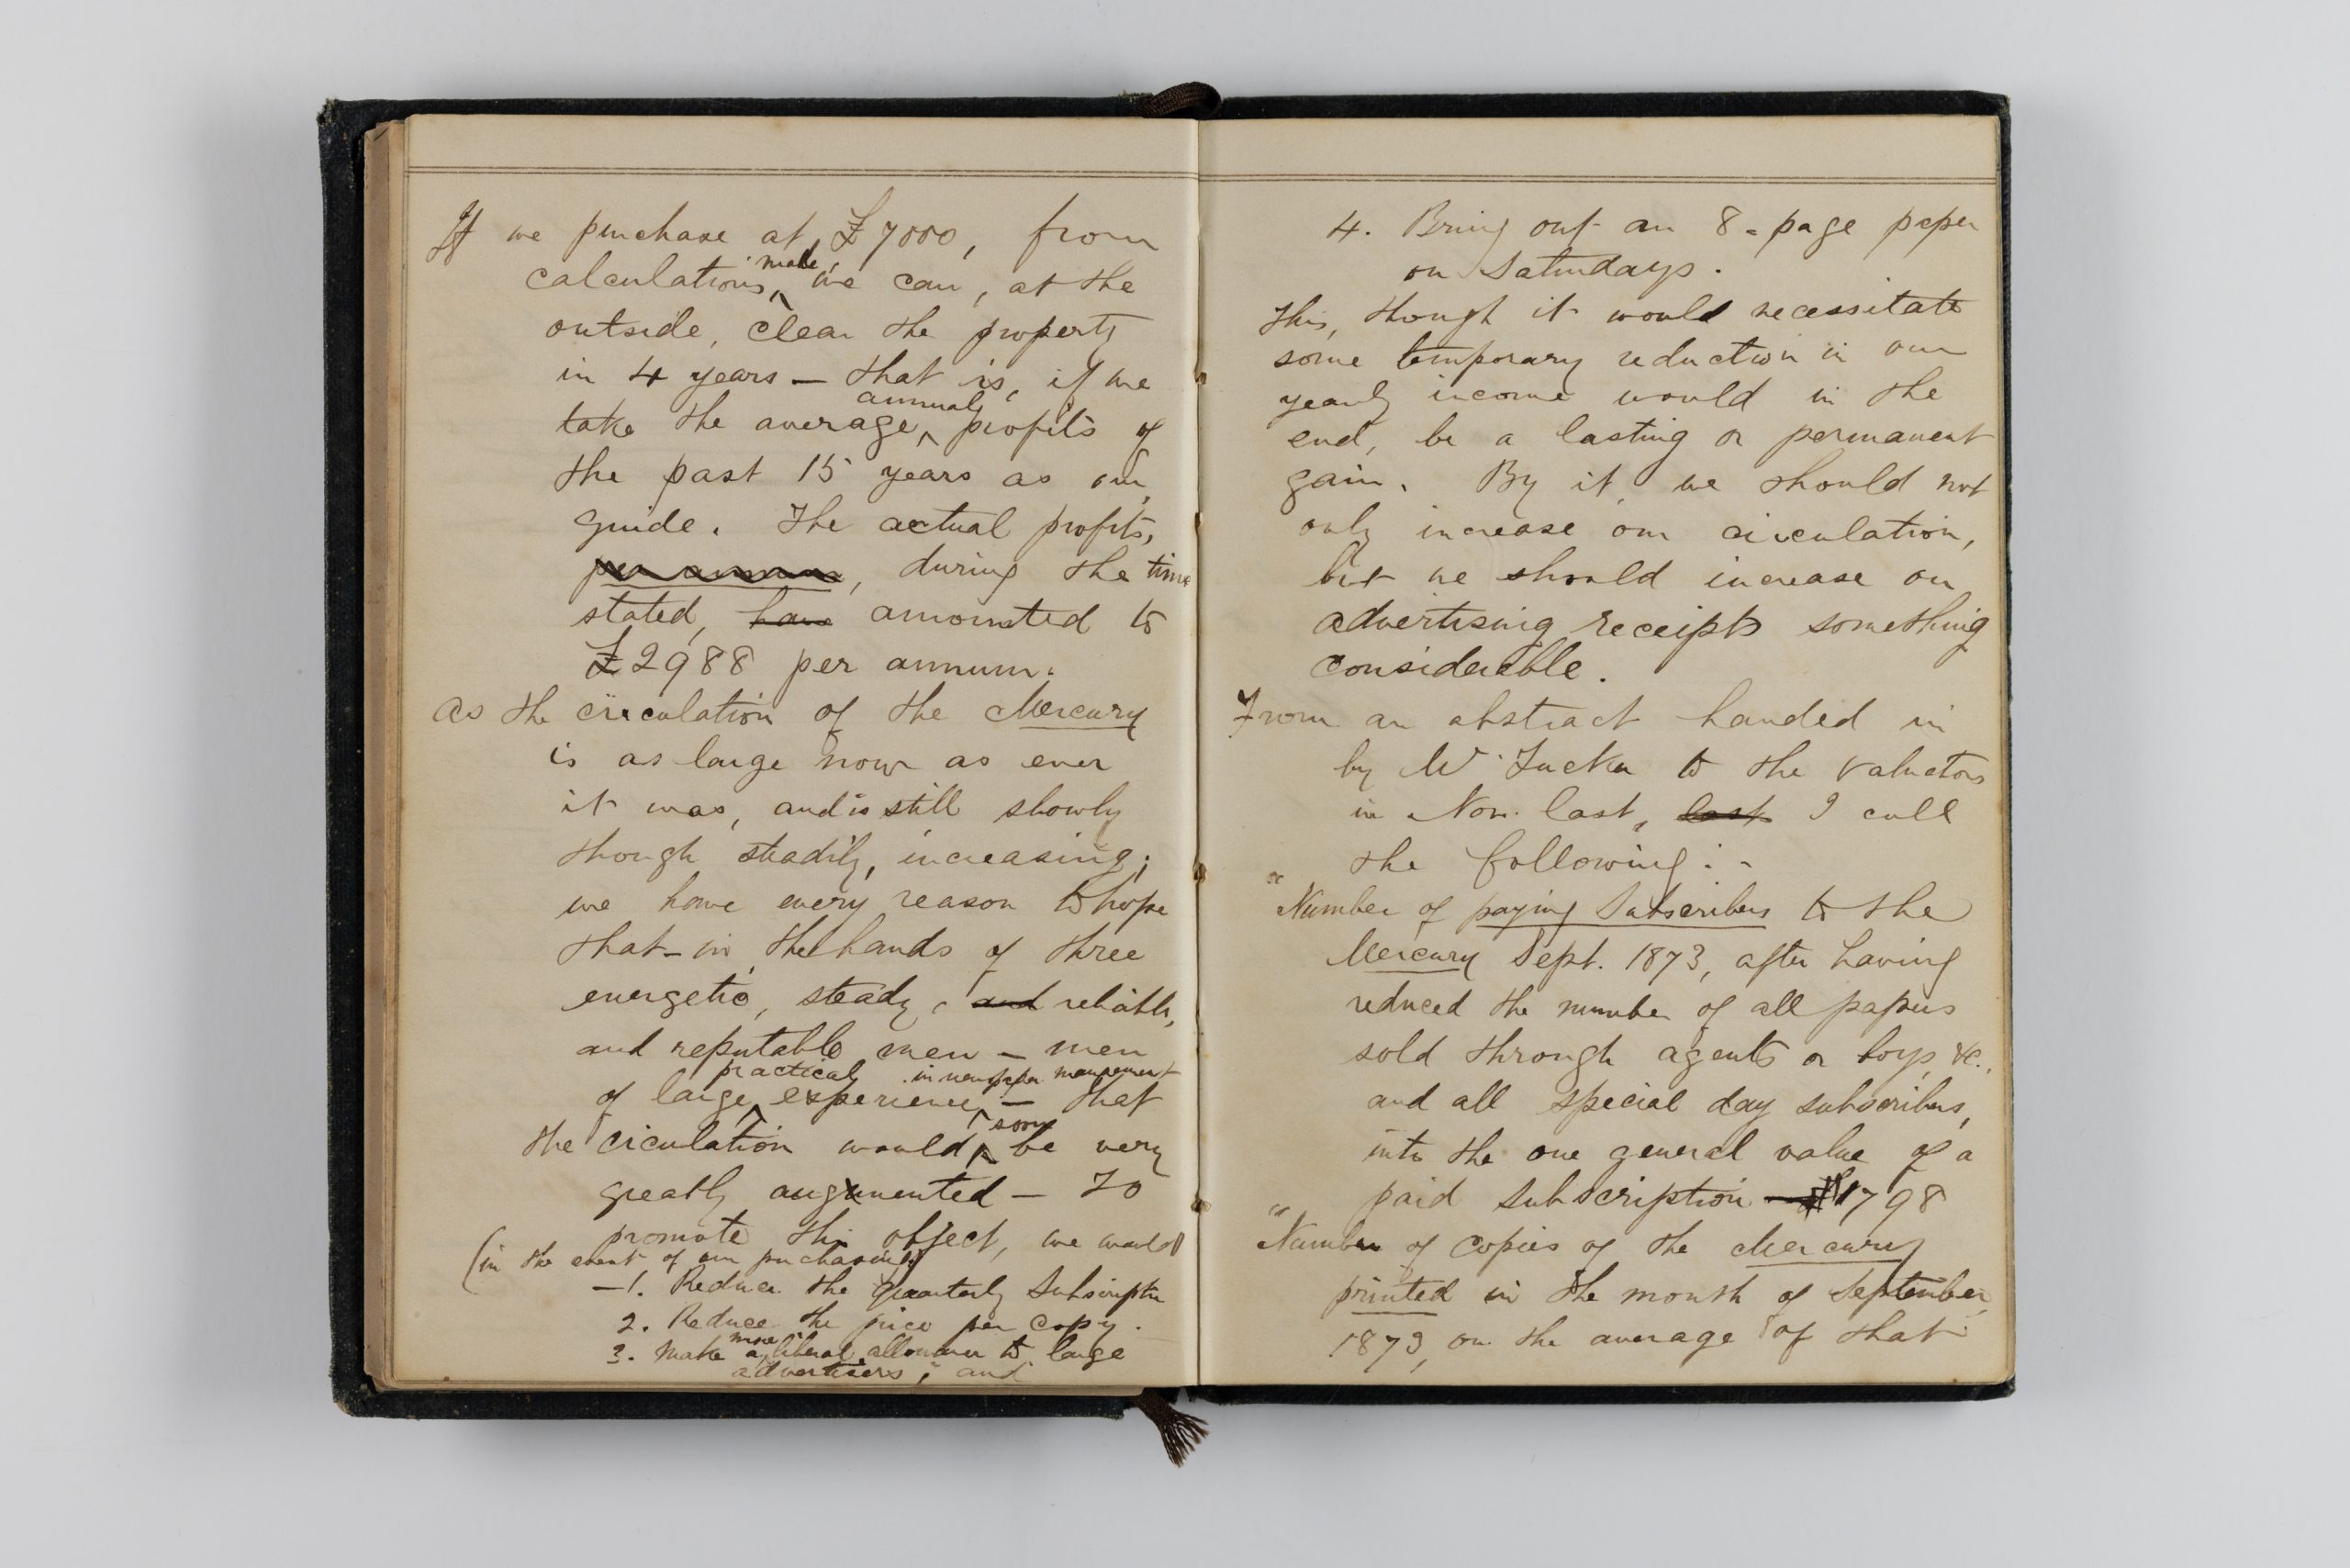 If we purchase at £7000, from
calculations, made, we can, at the
outside, clear the property
in 4 years — that is, if we
take the average annual profits of
the past 15 years as our
guide. The actual profits,
per annum, during the time
stated, have amounted to
£2988 per annum.
As the circulation of the Mercury
is as large now as ever
it was, and is still slowly
though steadily, increasing;
we have every reason to hope
that in the hands of three
energetic, steady, and reliable,
and reputable men — men
of large practical experience in newspaper management — that
the circulation would soon be very
greatly augmented — To
promote this object, we would
(in the event of our purchasing)
—1. Reduce the quarterly Subscriptn
2. Reduce the price per copy.
3. Make a more liberal allowance to large
advertisers; and
4. Bring out an 8-page paper
on Saturdays.
This, though it would necessitate
some temporary reduction in our
yearly income would in the
end, be a lasting or permanent
gain. By it we should not
only increase our circulation,
but we should increase our
advertising receipts something
considerable.
From an abstract handed in
by Mr Tucker to the valuators
in Nov. last, last I cull
the following:-
"Number of paying Subscribers to the
Mercury Sept. 1873, after having
reduced the number of all papers
sold through agents or boys, &c.,
and all special day subscribers,
into the one general value of a
paid subscription — 1798
"Number of copies of the Mercury
printed in the month of September,
1873, on the average of that